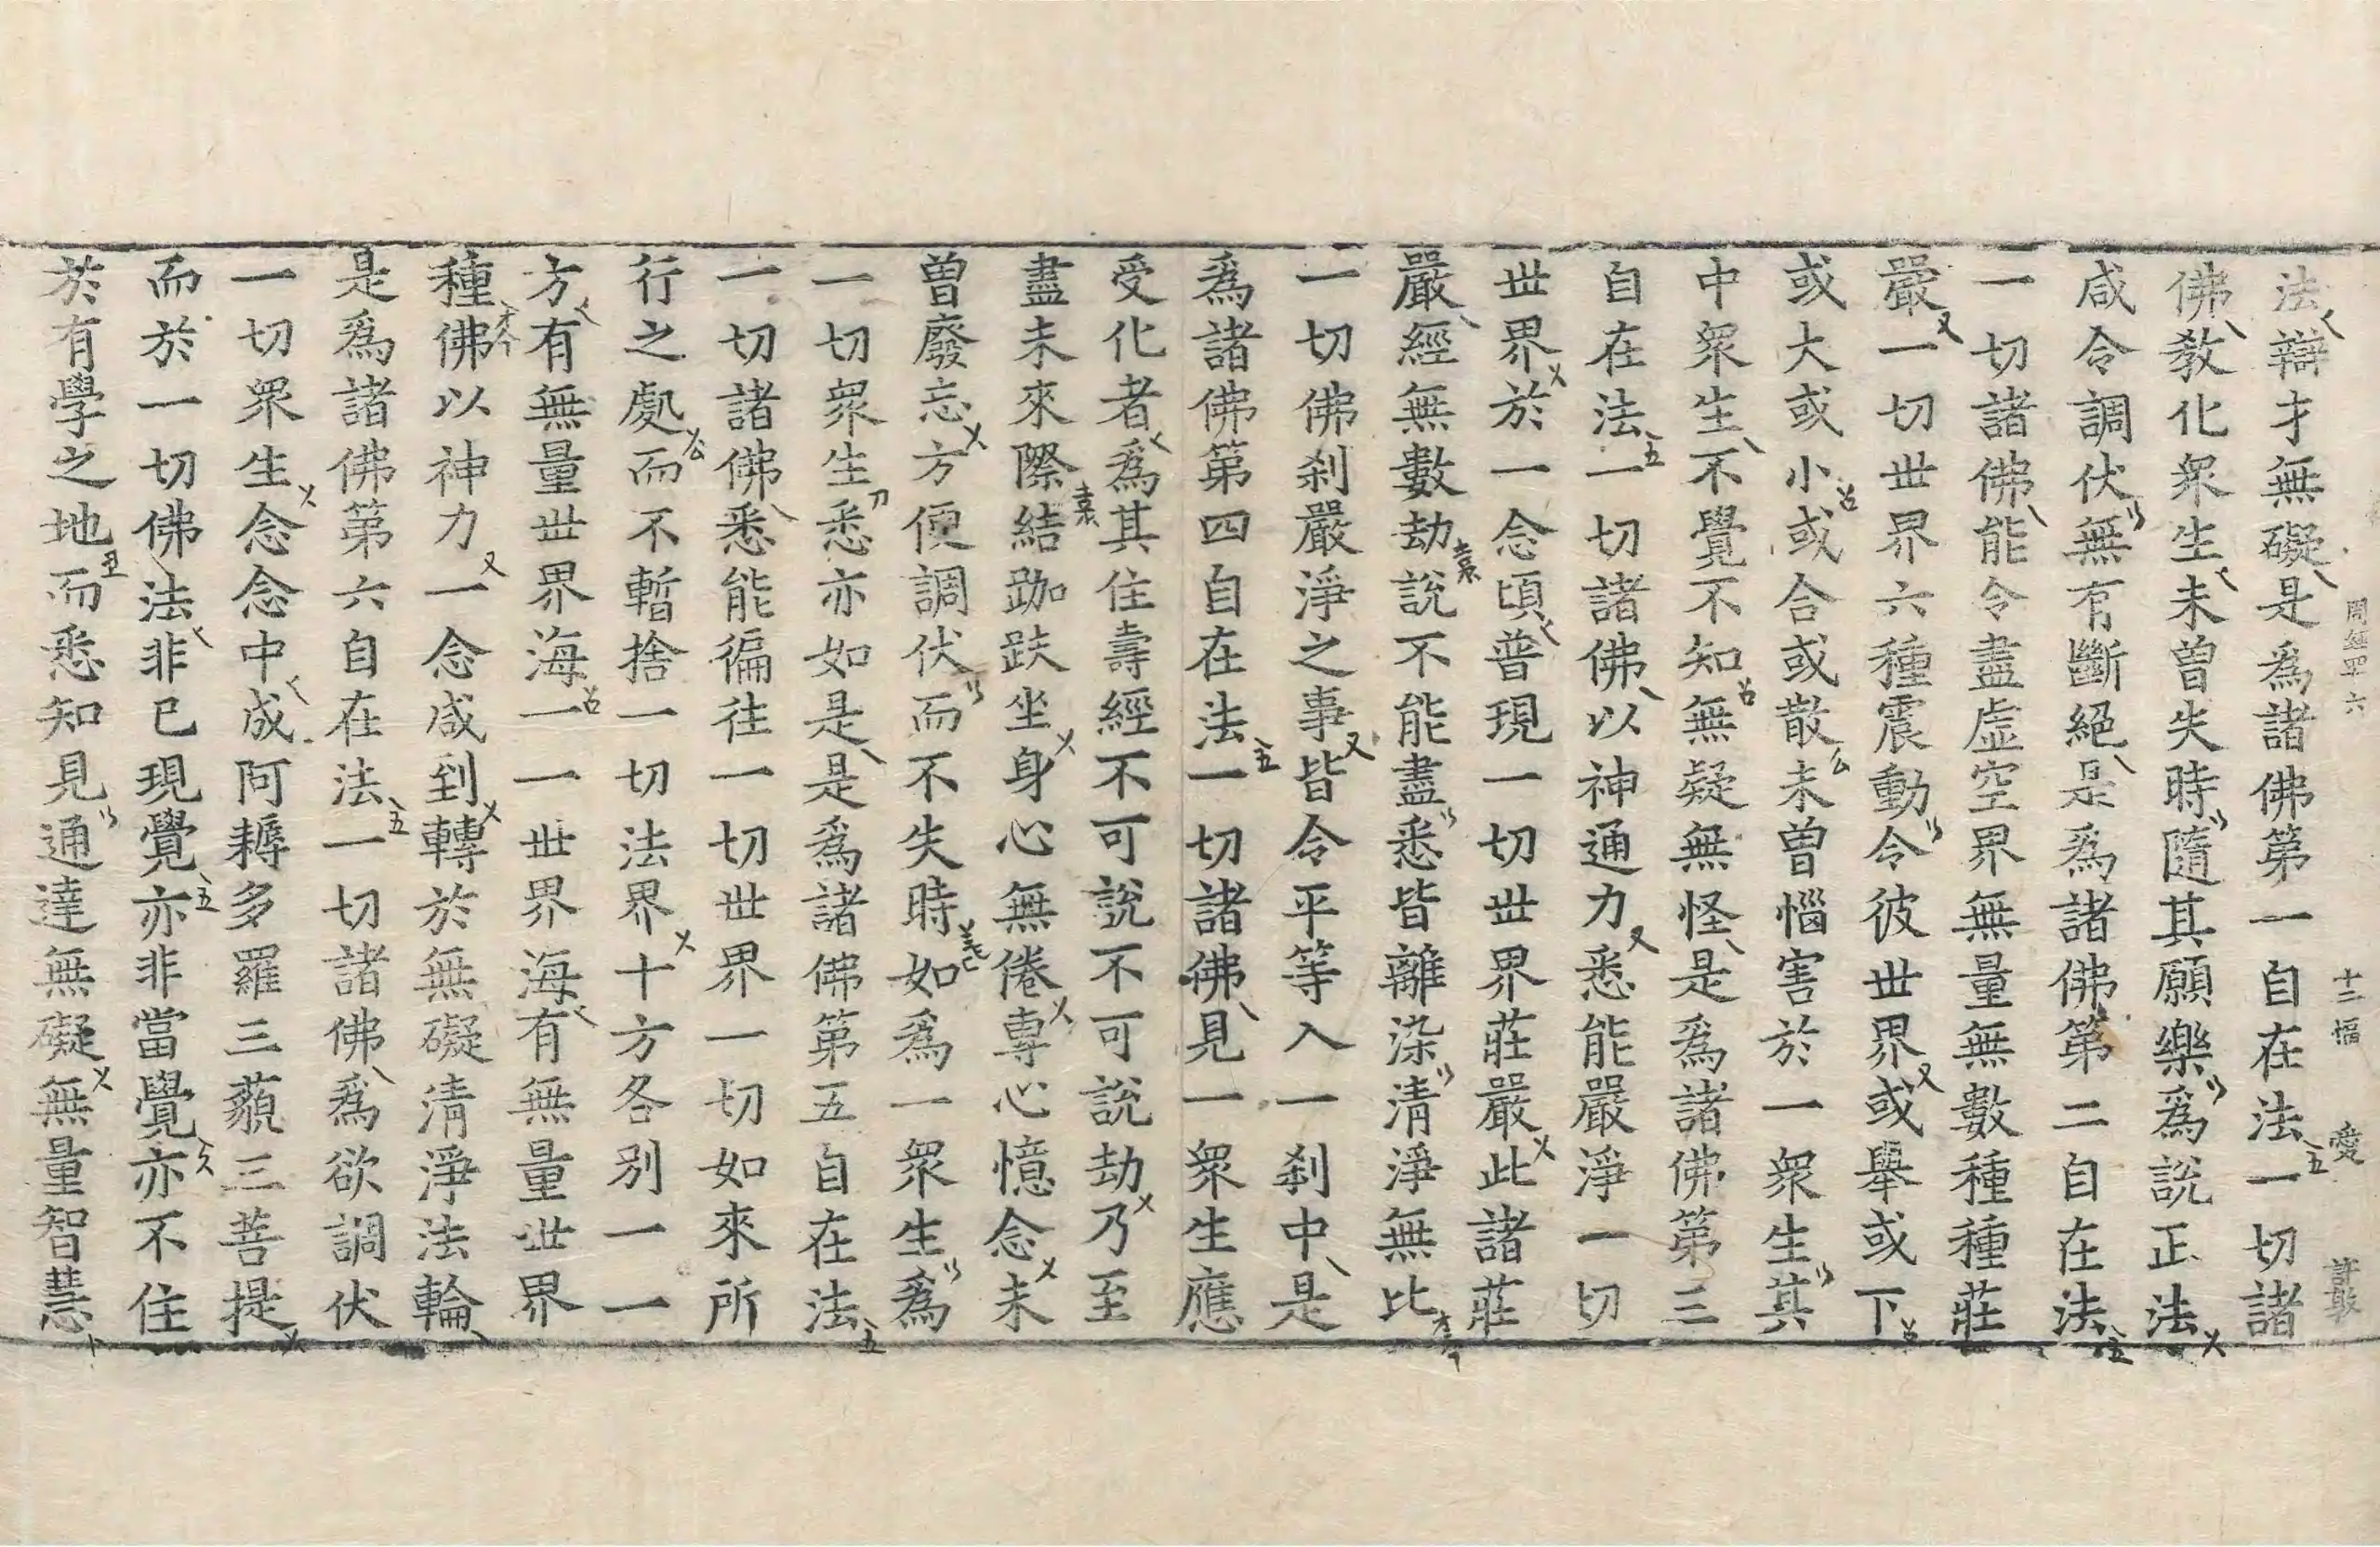 法辯才無礙是爲諸佛第一自在法一切諸
佛教化衆生未曾失時隨其願樂爲說正法
咸令調伏無有斷絕是爲諸佛第二自在法
一切諸佛能令盡虛空界無量無數種種莊
嚴一切世界六種震動令彼世界或舉或下
或大或小或合或散未曾惱害於一衆生其
中衆生不覺不知無疑無怪是爲諸佛第三
自在法一切諸佛以神通力悉能嚴淨一切
世界於一念頃普現一切世界莊嚴此諸莊
嚴經無數劫說不能盡悉皆離染清淨無比
一切佛刹嚴淨之事皆令平等入一刹中是
爲諸佛第四自在法一切諸佛見一衆生應
受化者爲其住壽經不可說不可說劫乃至
盡未來際結跏趺坐身心無倦專心憶念未
曾廢忘方便調伏而不失時如爲一衆生爲
一切衆生悉亦如是是爲諸佛第五自在法
一切諸佛悉能徧往一切世界一切如來所
行之處而不暫捨一切法界十方各別一一
方有無量世界海一一世界海有無量世界
種佛以神力一念咸到轉於無礙清淨法輪
是爲諸佛第六自在法一切諸佛爲欲調伏
一切衆生念念中成阿耨多羅三藐三菩提
而於一切佛法非已現覺亦非當覺亦不住
於有學之地而悉知見通達無礙無量智慧
周經四六 十二幅 愛 許敦